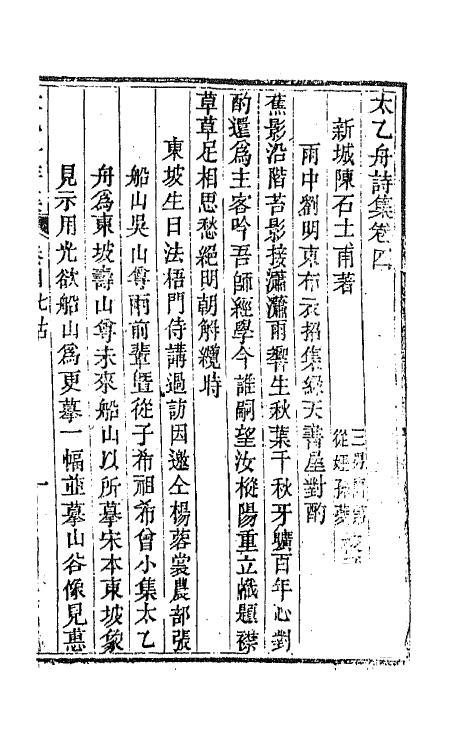 太乙舟詩集卷四
新城陳石士甫著
從姪孫
雨中劉明東布衣招集綠天書屋對酌
蕉影沿階苔影接瀟瀟雨響生秋葉千秋牙曠百年心對
酌還為主客吟吾師經學今誰嗣望汝樅陽重立幟題襟
草草足相思愁絕明朝解纜時
東坡生日法梧門侍講過訪因邀仝楊蓉裳農部張
船山吳山尊兩前輩曁從子希祖希曾小集太乙
舟為東坡壽山尊未來船山以所摹宋本東坡象
見示用光欲船山為更摹一幅並摹山谷像見惠
卷四七古
一